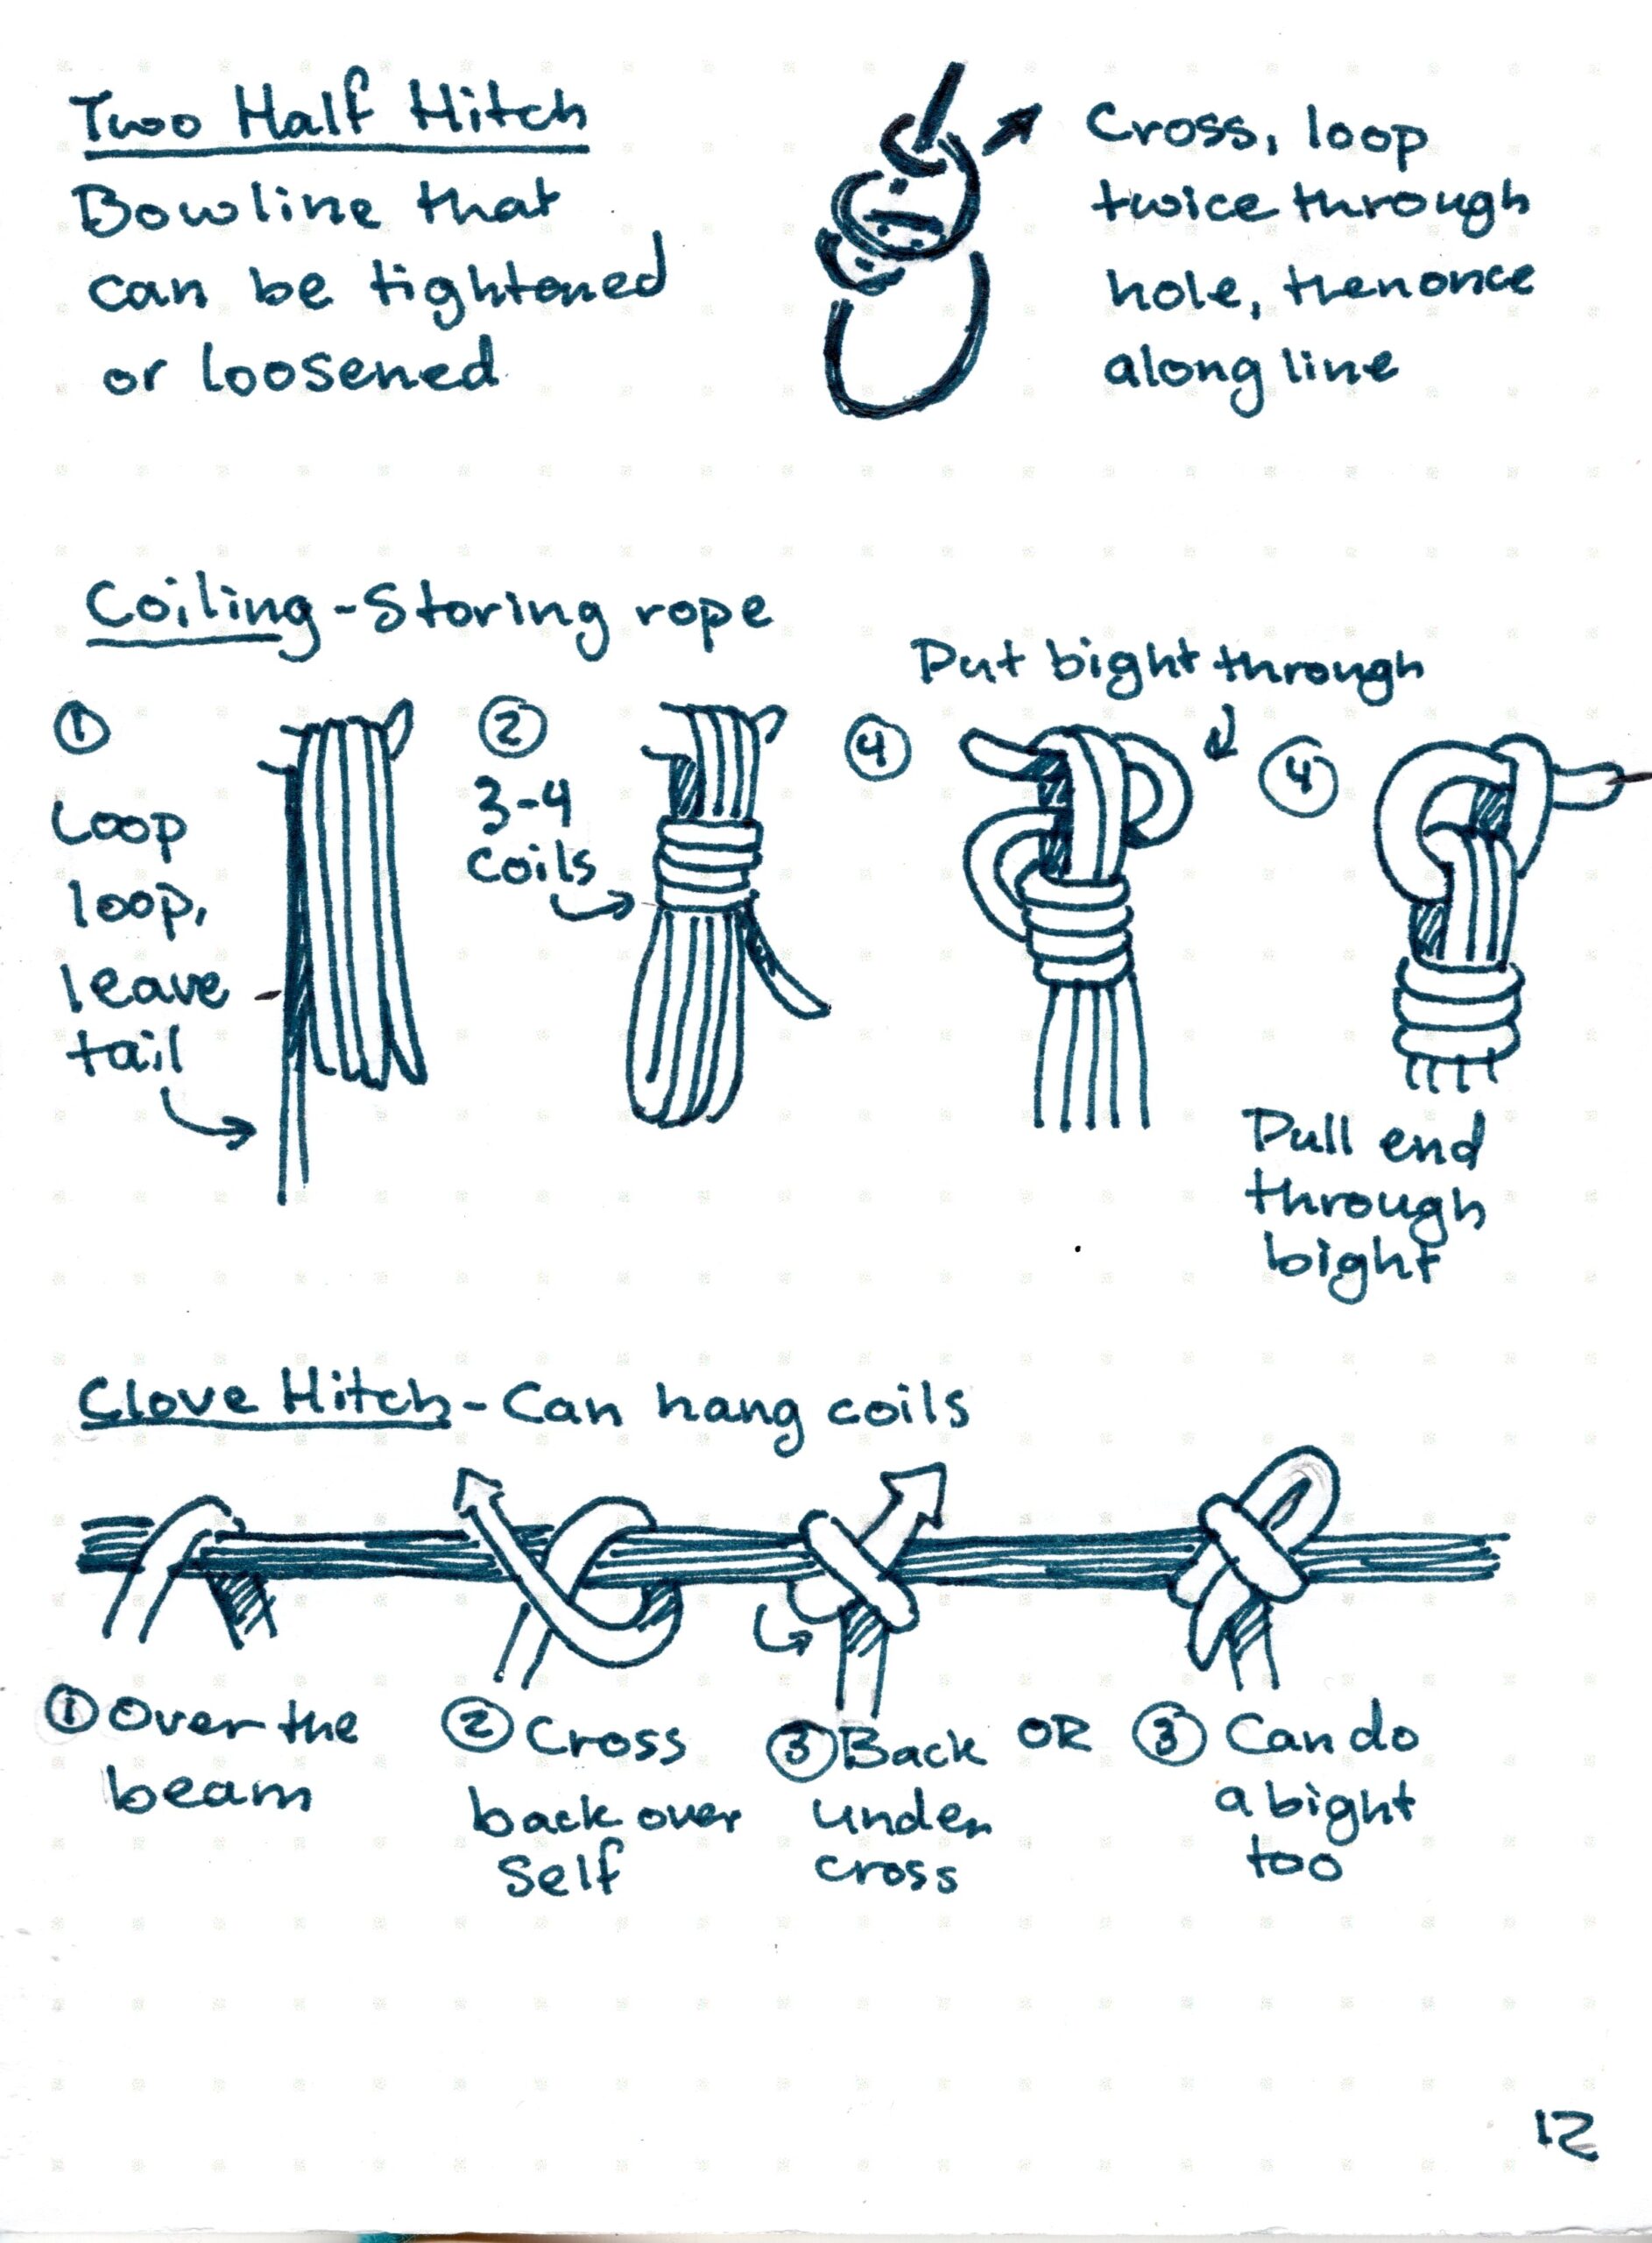 Two Half Hitch
Bowline that
can be tightened
or loosened
Cross, loop
twice through
hole, then once
along line
Coiling - Storing rope
①
Loop
loop,
leave
tail
②
3-4
coils
Put bight through
④
④
Pull end
through
bight
Clove Hitch - Can hang coils
① Over the
beam
② Cross
back over
self
③ Back
under
cross
OR
③ Can do
a bight
too
12